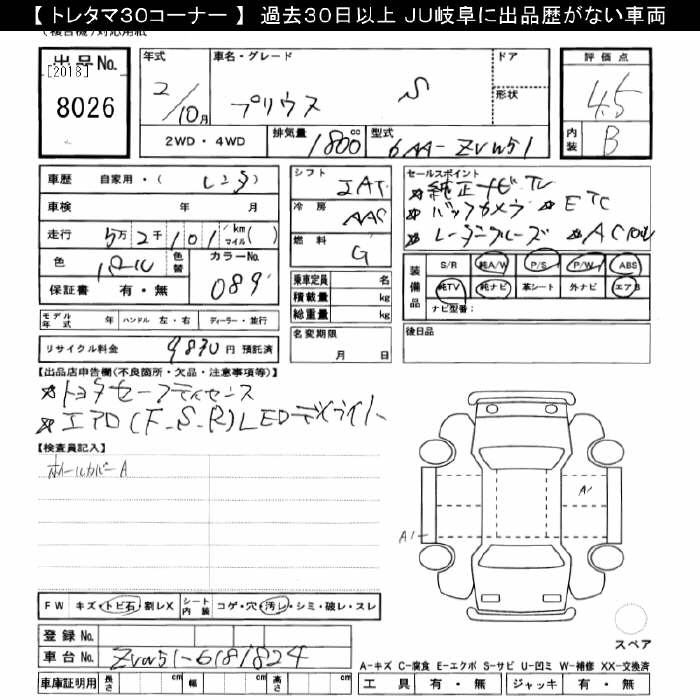 【 トレタマ30コーナー 】 過去30日以上 JU岐阜に出品歴がない車両
出品No.
[2018]
8026
年式
2/10月
車名・グレード
プリウス S
ドア
形状
評価点
4.5
内装
B
2WD・4WD
排気量
1800 cc
型式
6AA-ZVW51
車歴 自家用・( レンタ )
車検 年 月
走行 5万2千101 km マイル( )
色 パール
色替
カラーNo.
089
保証書 有・無
シフト
IAT
冷房
AAC
燃料
G
乗車定員 名
積載量 kg
総重量 kg
セールスポイント
★純正ナビTV
★バックカメラ ★ETC
★レーダークルーズ ★AC100V
装備品
S/R 純A/W P/S P/W ABS
純TV 純ナビ 革シート 外ナビ エアB
ナビ型番:
モデル年式 年 ハンドル 左・右 ディーラー・並行
リサイクル料金 9830円 預託済
名変期限
月 日
後日品
【出品店申告欄(不良箇所・欠品・注意事項等)】
★トヨタセーフティセンス
★エアロ(F.S.R)LEDデイライト
【検査員記入】
ホイールカバーA
A1
A1
FW キズ・トビ石・割レX
シート内装 コゲ・穴・汚レ・シミ・破レ・スレ
登録No.
車台No. ZVW51-6181824
スペア
A-キズ C-腐食 E-エクボ S-サビ U-凹ミ W-補修 XX-交換済
車庫証明用 長さ cm 幅 cm 高さ cm
工具 有・無 ジャッキ 有・無